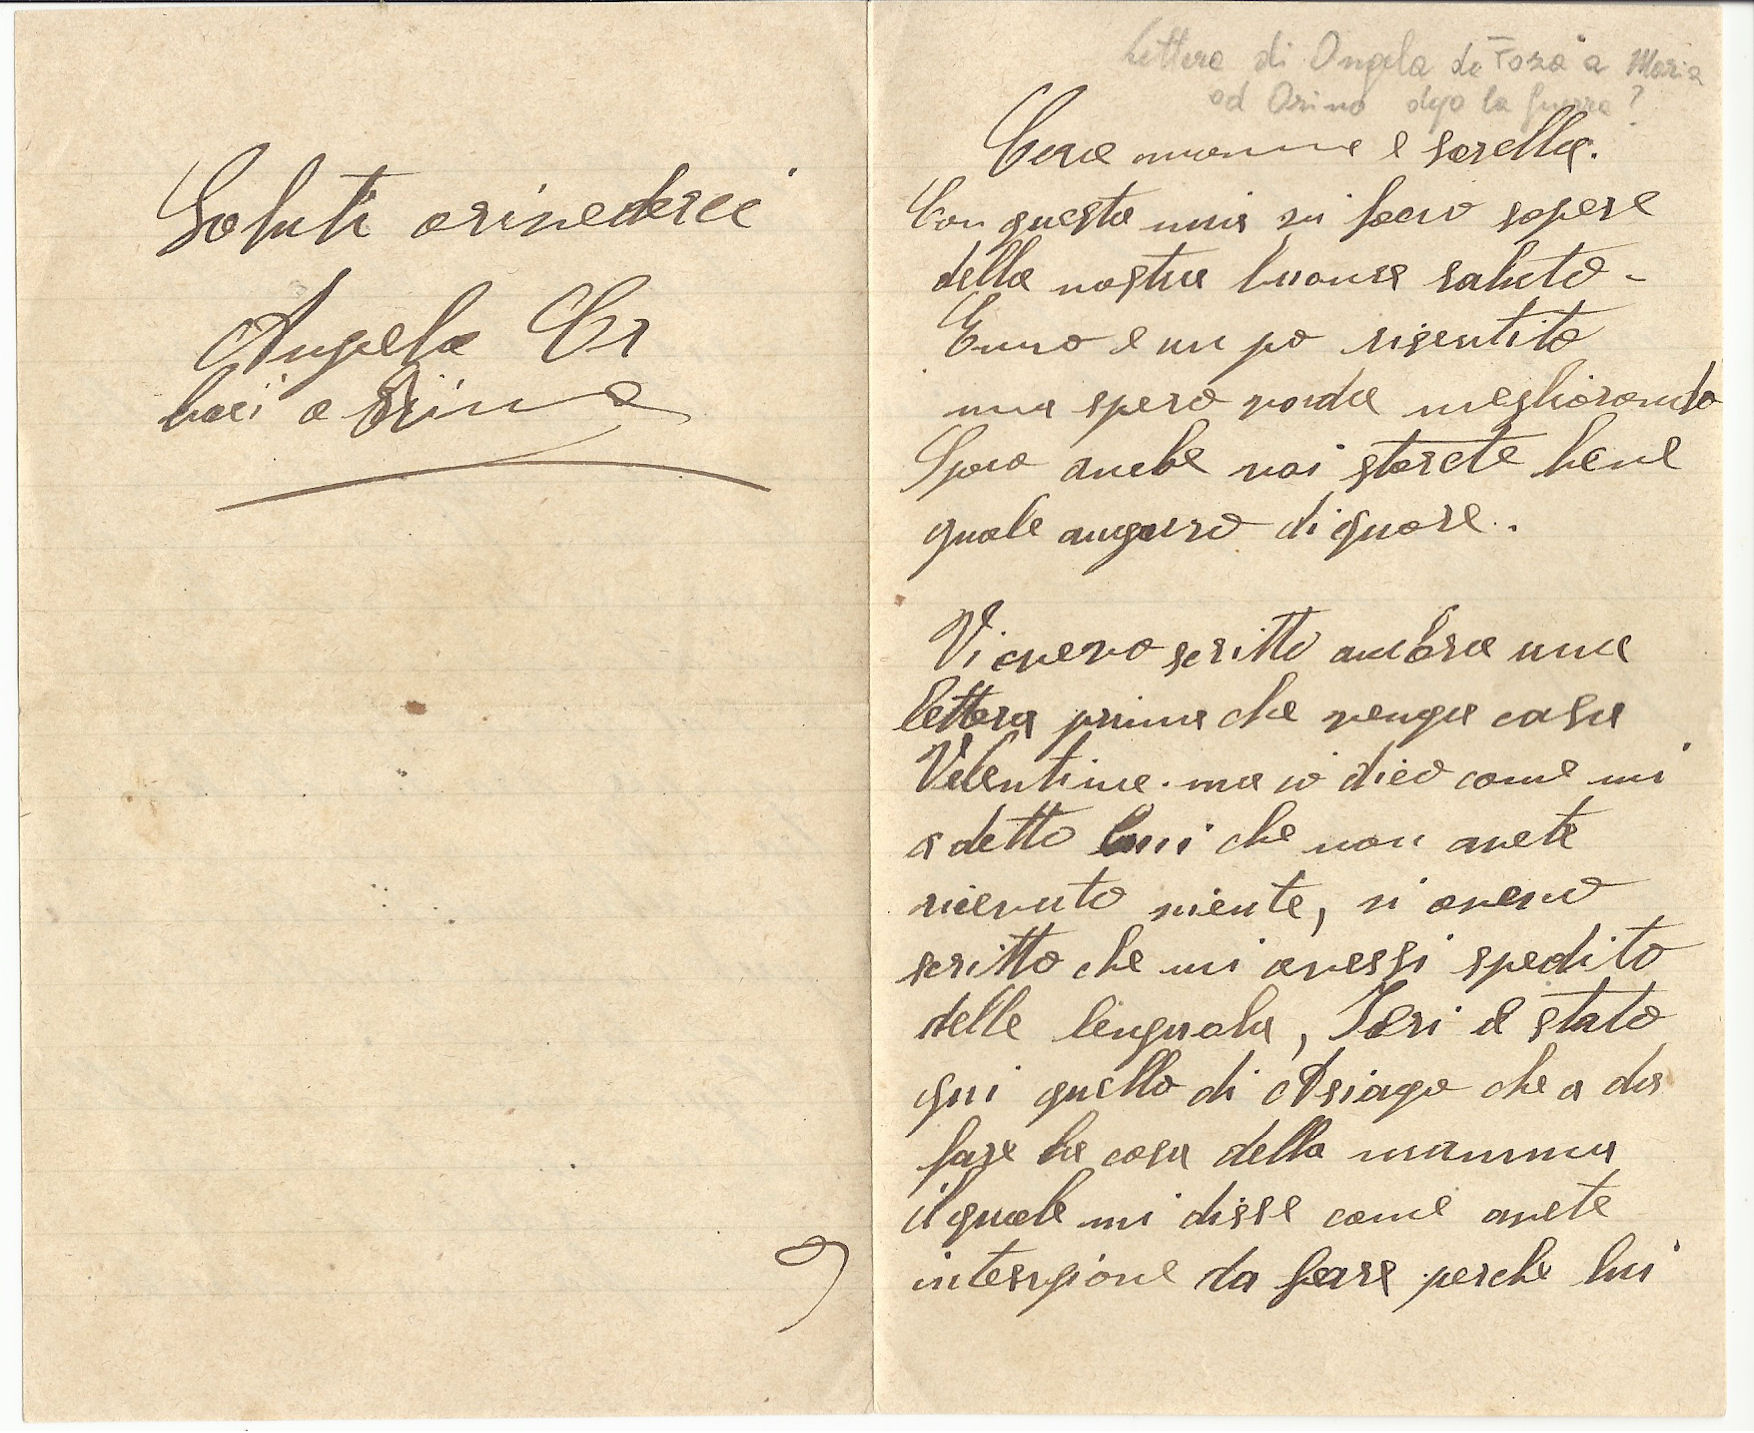 Lettera di Angela da Foza a Maria
ad Orino dopo la guerra?
Cara mamma e sorella.
Con questa mia vi facio sapere
della nostra buona saluto -
e un po risentito
ma spero vada megliorando
Spero anche voi starete bene
quale auguro di quore.
Vi avevo scritto ancora una
lettera prima che venga casa
Valentino. ma io dico come mi
a detto lui che non avete
ricevuto niente, vi avevo
scritto che mi avessi spedito
delle lenguola, Ieri e stato
qui quello di Asiago che a da
fare la casa della mamma
il quale mi disse come avete
intenzione da fare perche lui
Saluti arivederci
Angela Cr
baci a Rina